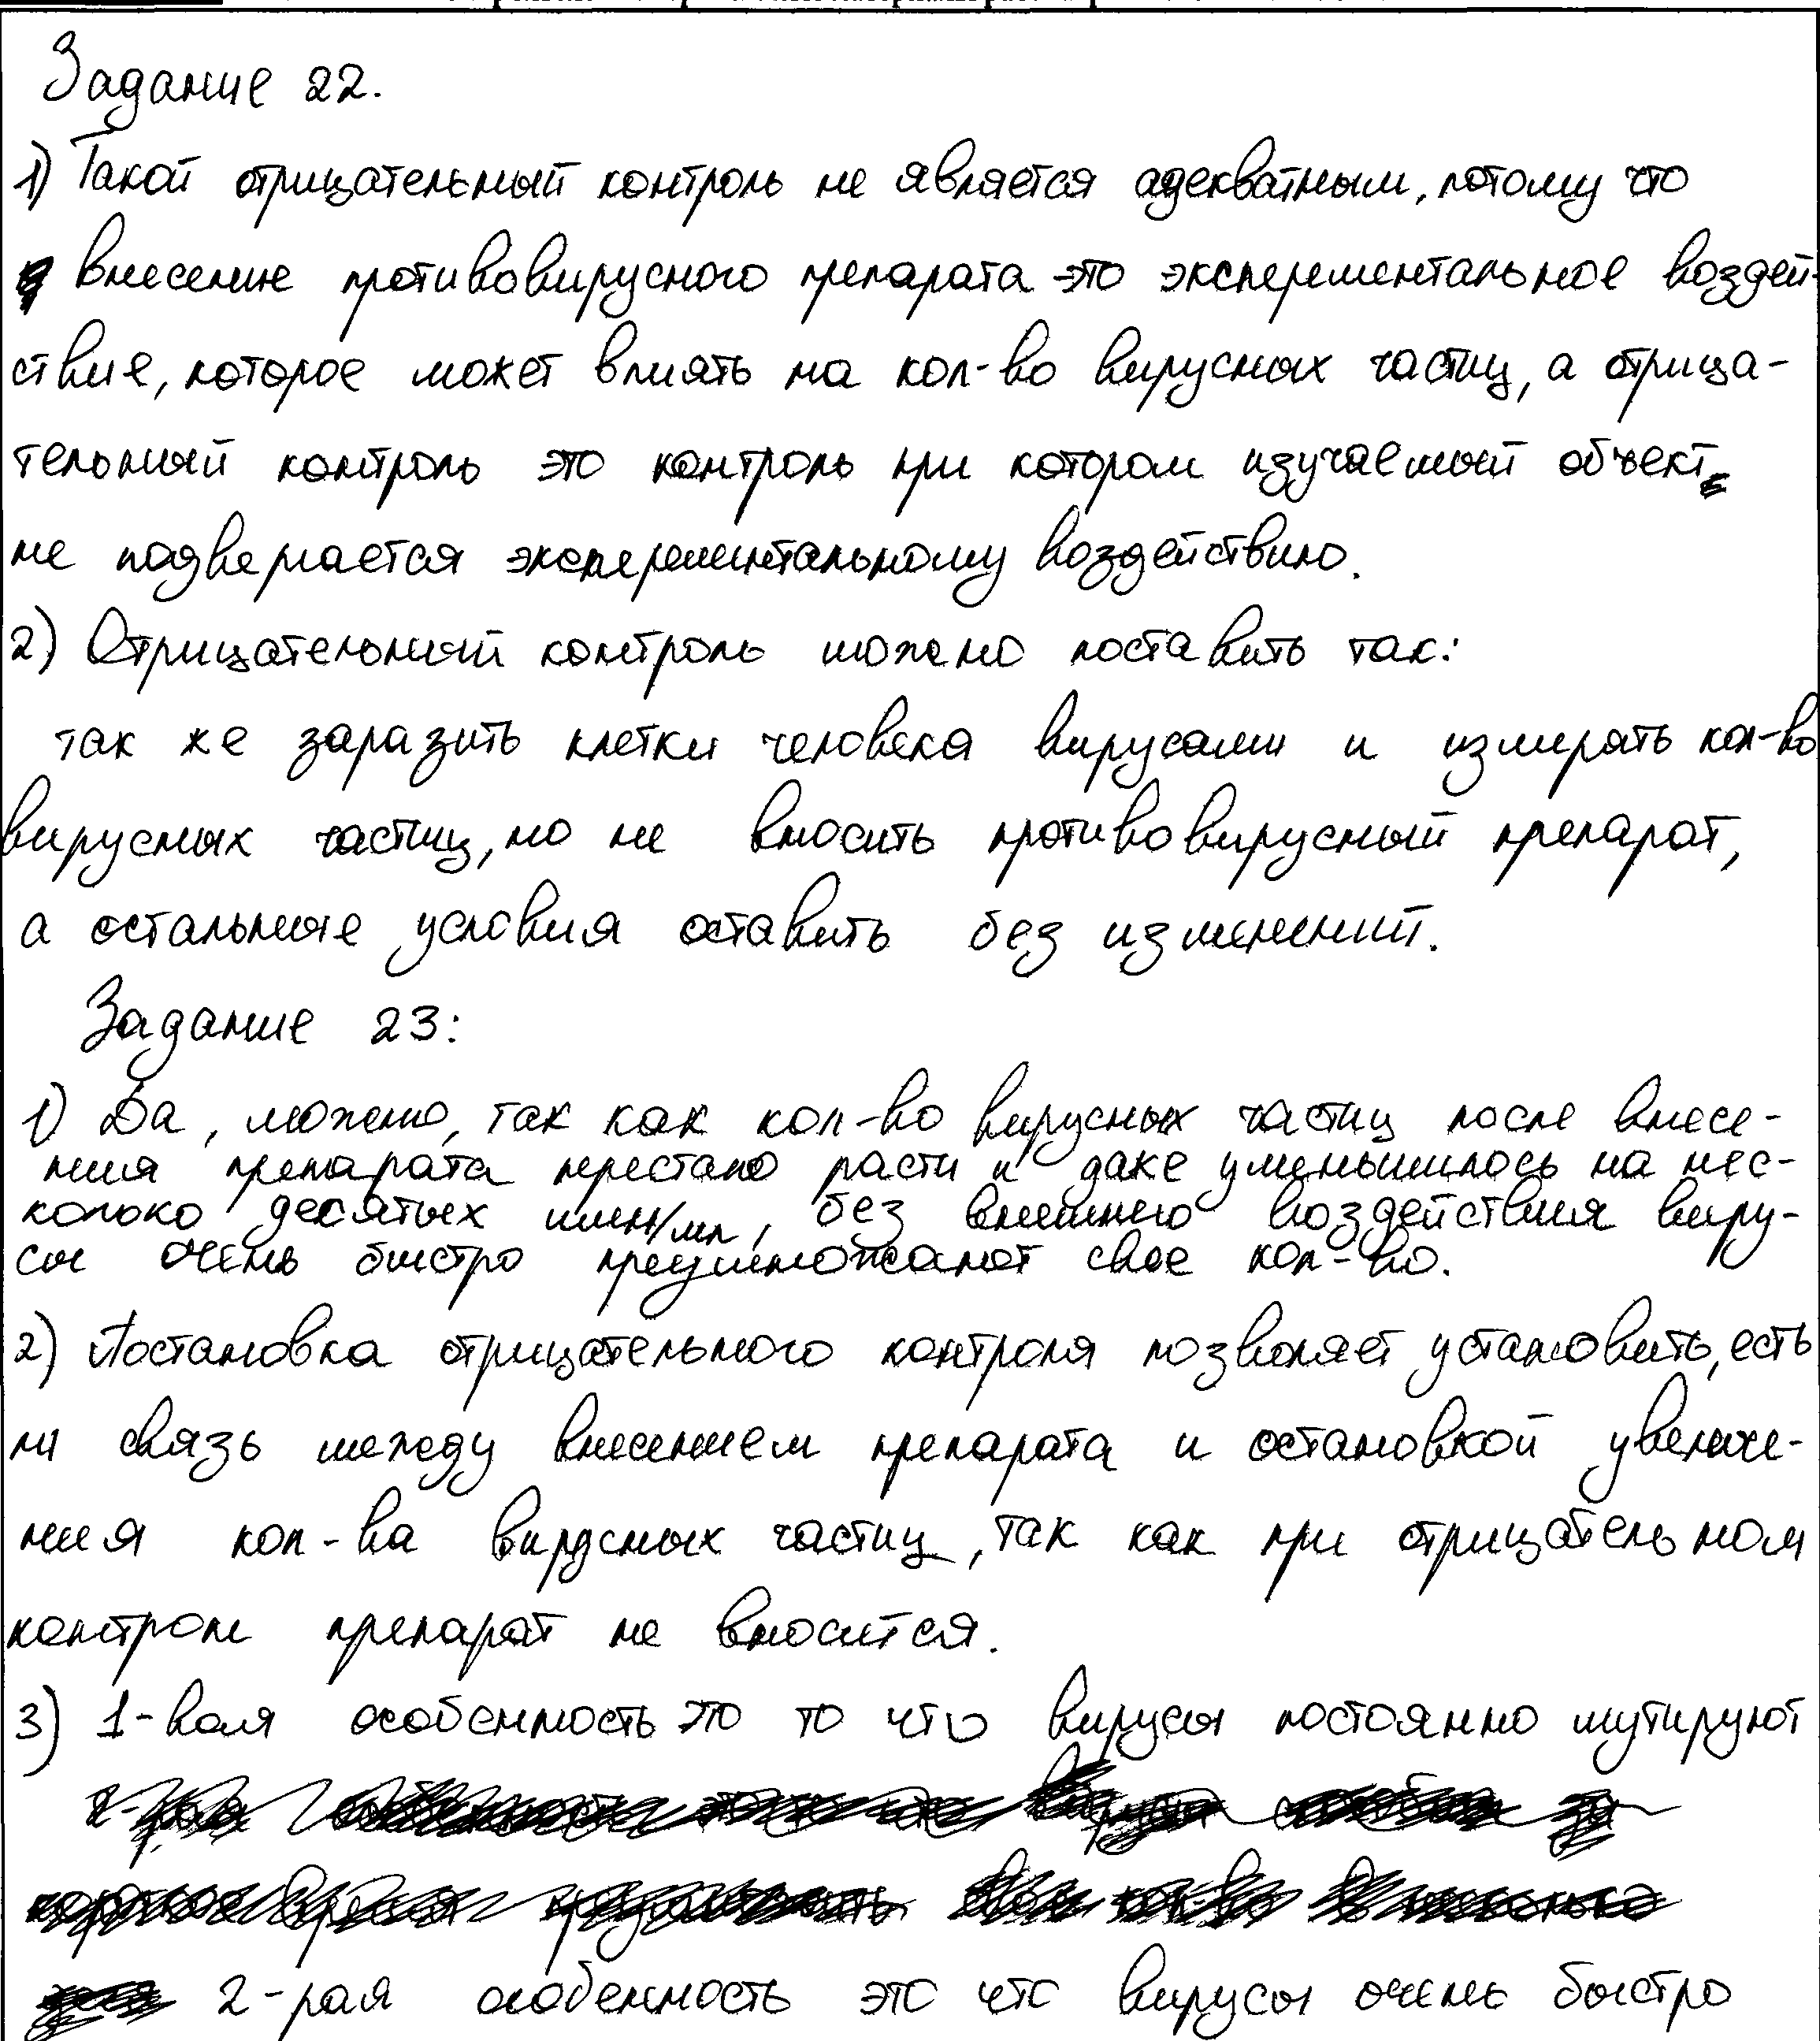 Задание 22.
1) Такой отрицательный контроль не является адекватным, потому что
внесение противовирусного препарата это эксперементальное воздей-
ствие, которое может влиять на кол-во вирусных частиц, а отрица-
тельный контроль это контроль при котором изучаемый объект
не подвергается эксперементальному воздействию.
2) Отрицательный контроль можно поставить так:
так же заразить клетки человека вирусами и измерять кол-во
вирусных частиц, но не вносить противовирусный препарат,
а остальные условия оставить без изменений.
Задание 23:
1) Да, можно, так как кол-во вирусных частиц после внесе-
ния препарата перестало расти и даже уменьшилось на нес-
колько десятых млн/мл, без внешнего воздействия виру-
сы очень быстро преумножают свое кол-во.
2) Постановка отрицательного контроля позволяет установить, есть
ли связь между внесением препарата и остановкой увеличе-
ния кол-ва вирусных частиц, так как при отрицательном
контроле препарат не вносится.
3) 1-вая особенность это то что вирусы постоянно мутируют
2-рая особенность это что вирусы очень быстро